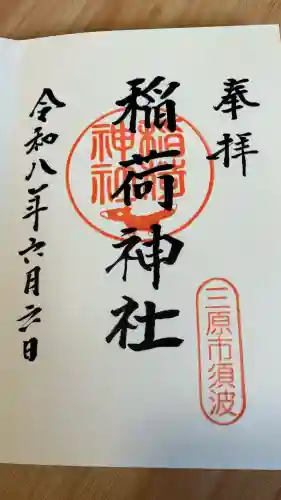 奉拝
三原市須波
稲荷神社
稲荷神社
令和八年六月六日